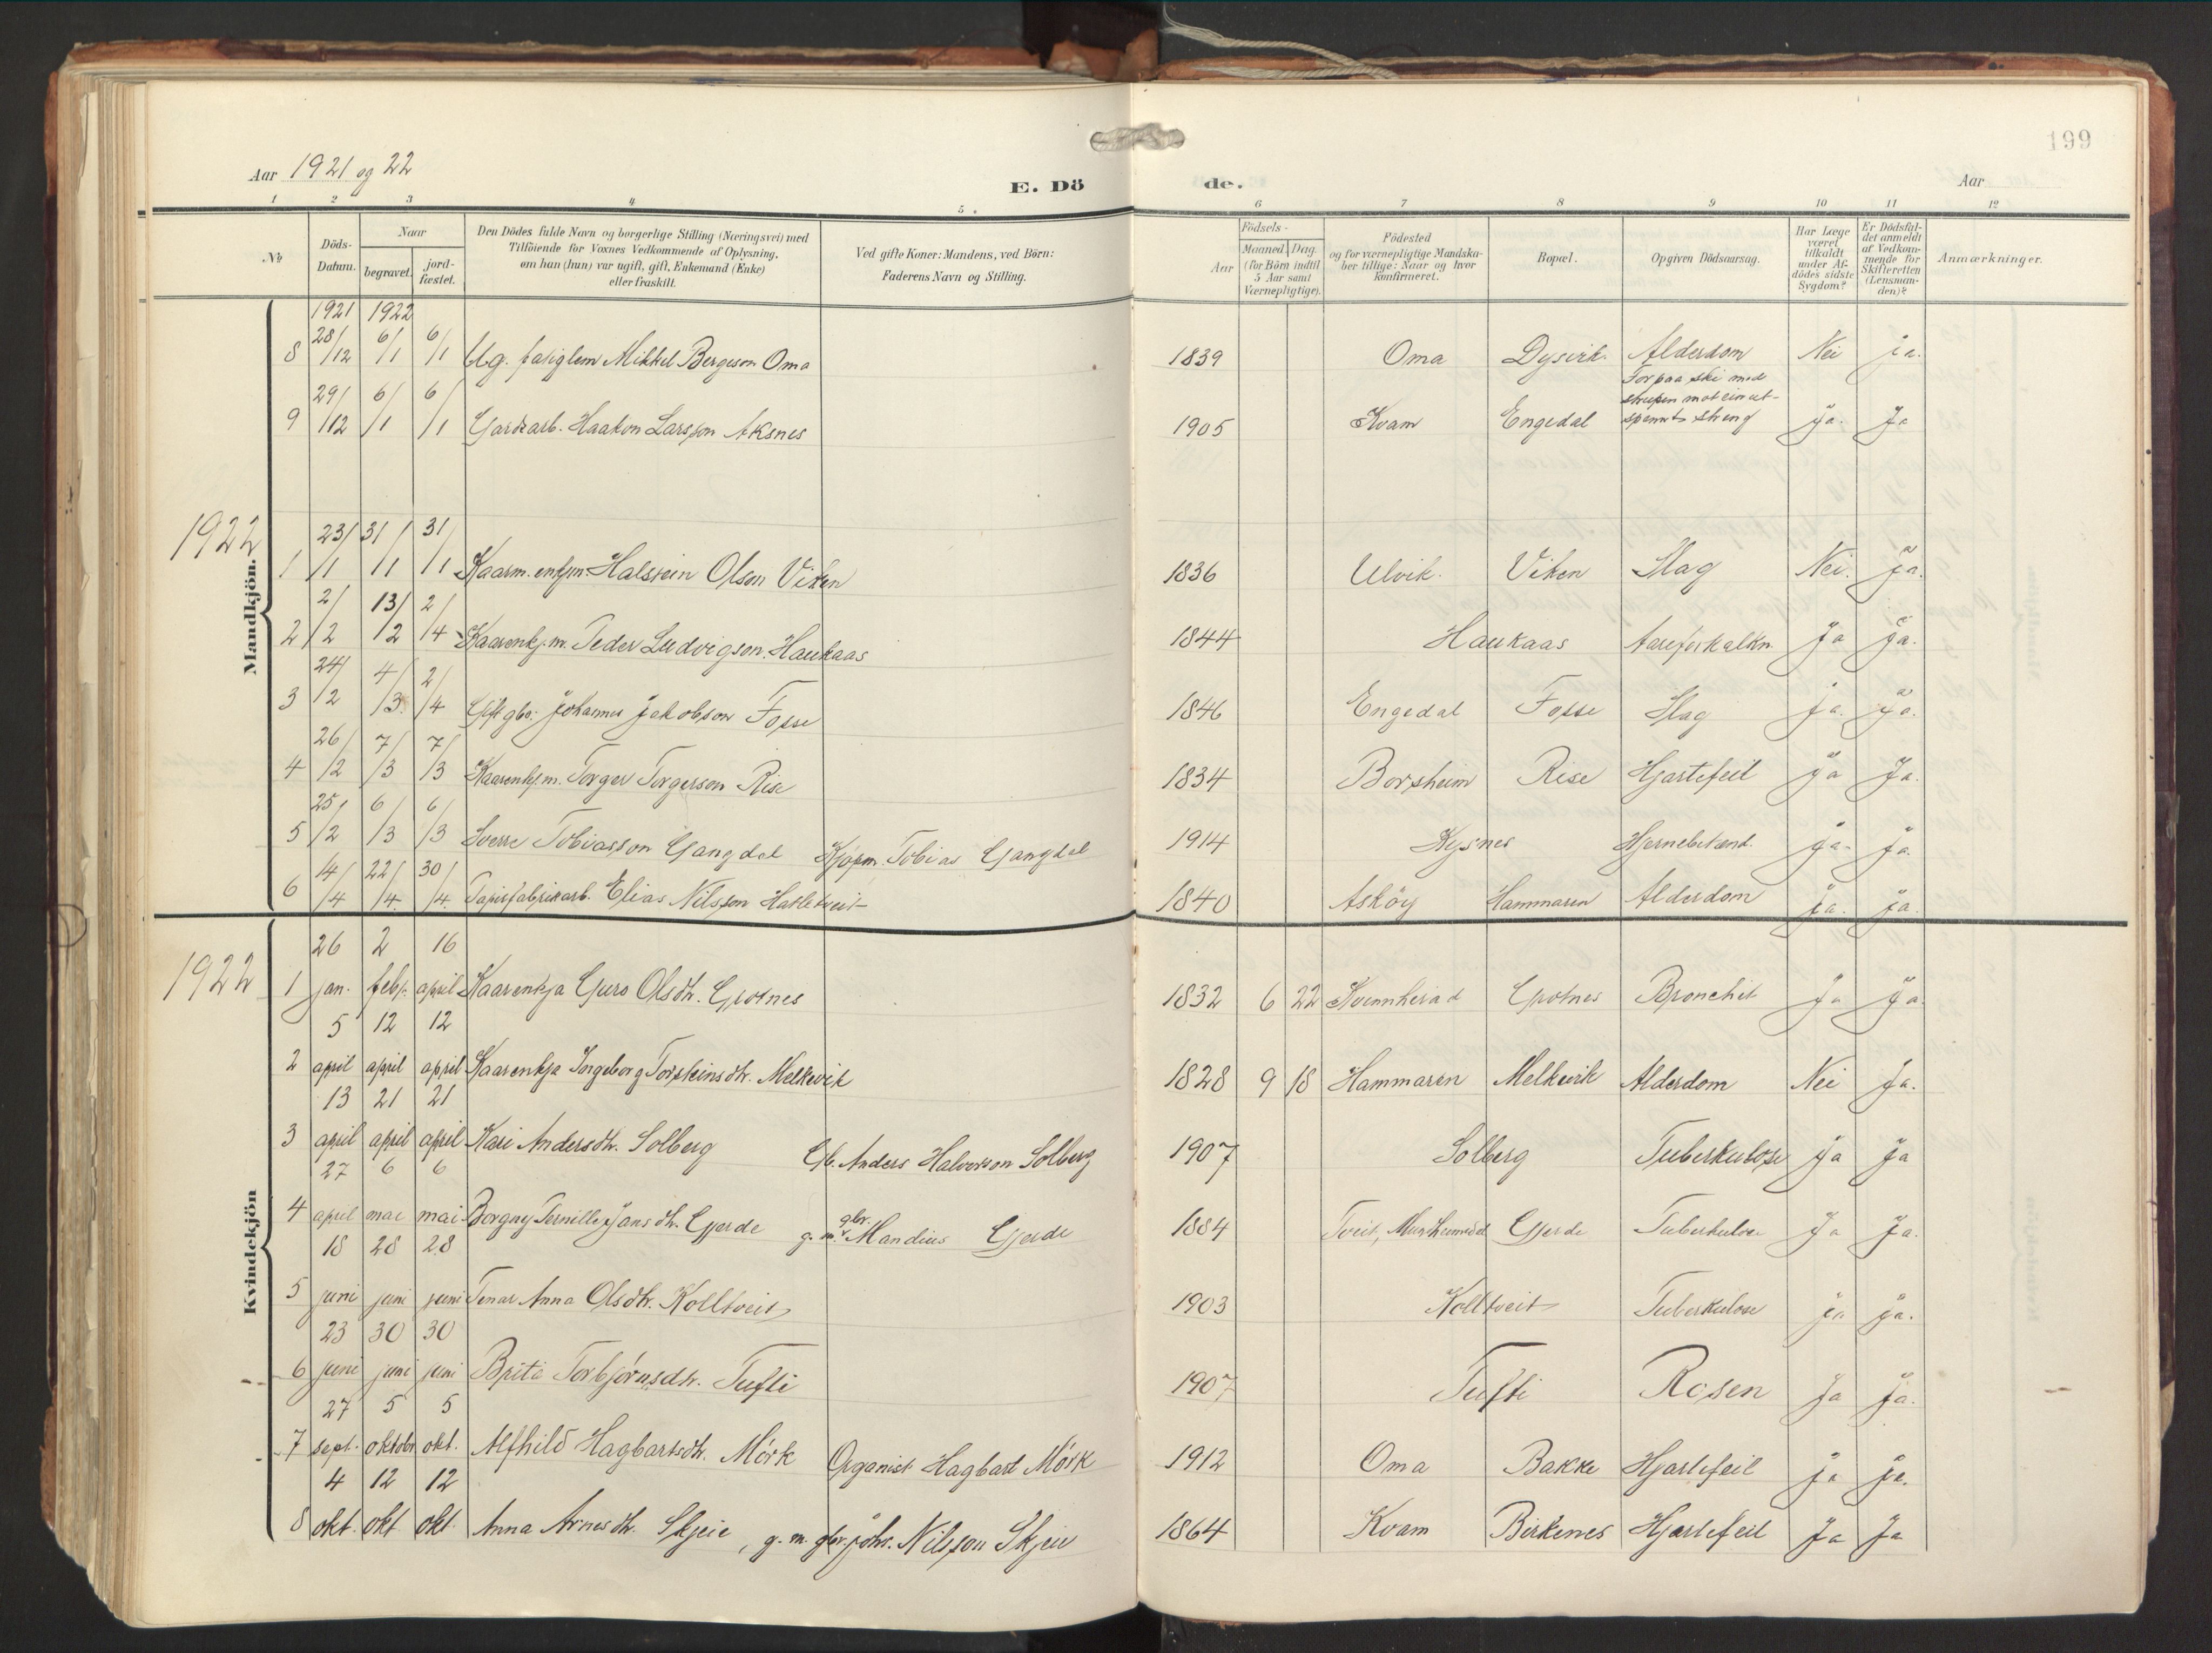 199
Aar 1921 og 22
E. Dö de.
Aar
1 2 3 4 5 6 7 8 9 10 11 12
No
Döds-Datum.
Naar
begravet.
jord-fæstet.
Den Dödes fulde Navn og borgerlige Stilling (Næringsvei) med
Tilföiende for Voxnes Vedkommende af Oplysning,
om han (hun) var ugift, gift, Enkemand (Enke)
eller fraskilt.
Ved gifte Koner: Mandens, ved Börn:
Faderens Navn og Stilling.
Födsels-
Aar
Maaned. Dag.
(for Börn indtil
5 Aar samt
Værnepligtige).
Födested
og for værnepligtige Mandska-
ber tillige: Naar og hvor
konfirmeret.
Bopæl.
Opgiven Dödsaarsag.
Har Læge
været
tilkaldt
under Af-
dödes sidste
Sygdom?
Er Dödsfal-
det anmeldt
af Vedkom-
mende for
Skifteretten
(Lensman-
den)?
Anmærkninger.
Mandkjön.
1921 1922
8 28/12 6/1 6/1 Ug. fatiglem Mikkel Bergeson Oma 1839 Oma Dysvik Alderdom Nei ja.
9 29/12 6/1 6/1 Gardsarb. Haakon Larsson Aksnes 1905 Kvam Engedal For paa ski med
strupen mot ein ut-
spennt streng Ja. Ja
1922
1 23/1 31/1 31/1 Kaarm. enkjm. Halstein Olson Viken 1836 Ulvik. Viken Slag Nei. Ja.
2 2/2 13/2 2/4 Kaarenkj.m. Peder Ludvigson Haukaas 1844 Haukaas Aareforkalkn. Ja Ja.
3 24/2 4/3. 2/4 Gift gbr. Johannes Jakobson Fosse 1846 Engedal Fosse Slag ja. Ja.
4 26/2 7/3 7/3 Kaarenkj.m. Torger Torgerson Rise 1834 Borsheim Rise Hjartefeil Ja Ja.
5 25/2 6/3 6/3 Sverre Tobiasson Gangdal Kjøpm. Tobias Gangdal 1914 Kysnes Hjernebetænd. ja. Ja.
6 14/4 22/4. 30/4. Papirfabrikarb. Elias Nilsson Hatletveit 1840 Askøy Hammaren Alderdom ja. ja.
Kvindekjön
1922
1 26 jan. 2 febr. 16 april Kaarenkja Guro Olsdtr. Grotnes 1832 6 22 Kvinnherad Grotnes Bronchit Ja Ja.
2 5 april 12 april 12 april Kaarenkja Ingeborg Torsteinsdtr. Melkevik 1828 9 18 Hammaren Melkevik Alderdom Nei Ja.
3 13 april 21 april 21 april Kari Andersdtr. Solberg Gb. Anders Halvorson Solberg 1907 Solberg Tuberkulose Ja Ja
4 27 april 6 mai 6 mai Borgny Pernille Jansdtr. Gjerde g. m. gbr. Mandius Gjerde 1884 Tveit, Gjerde Tuberkulose Ja Ja.
5 18 juni 28 juni 28 juni Tenar Anna Olsdtr. Kolltveit 1903 Kolltveit Tuberkulose ja Ja.
6 23 juni 30 juni 30 juni Brita Torbjørnsdtr. Tufti 1907 Tufti Rosen Ja Ja.
7 27 sept. 5 oktobr 5 okt. Alfhild Hagbartsdtr. Mørk Organist Hagbart Mørk 1912 Oma Bakke Hjartefeil Ja Ja.
8 4 okt. 12 okt 12 okt. Anna Arnesdtr. Skjeie, g. m. gbr. Johs. Nilsson Skjeie 1864 Kvam Birkenes Hjartefeil Ja Ja